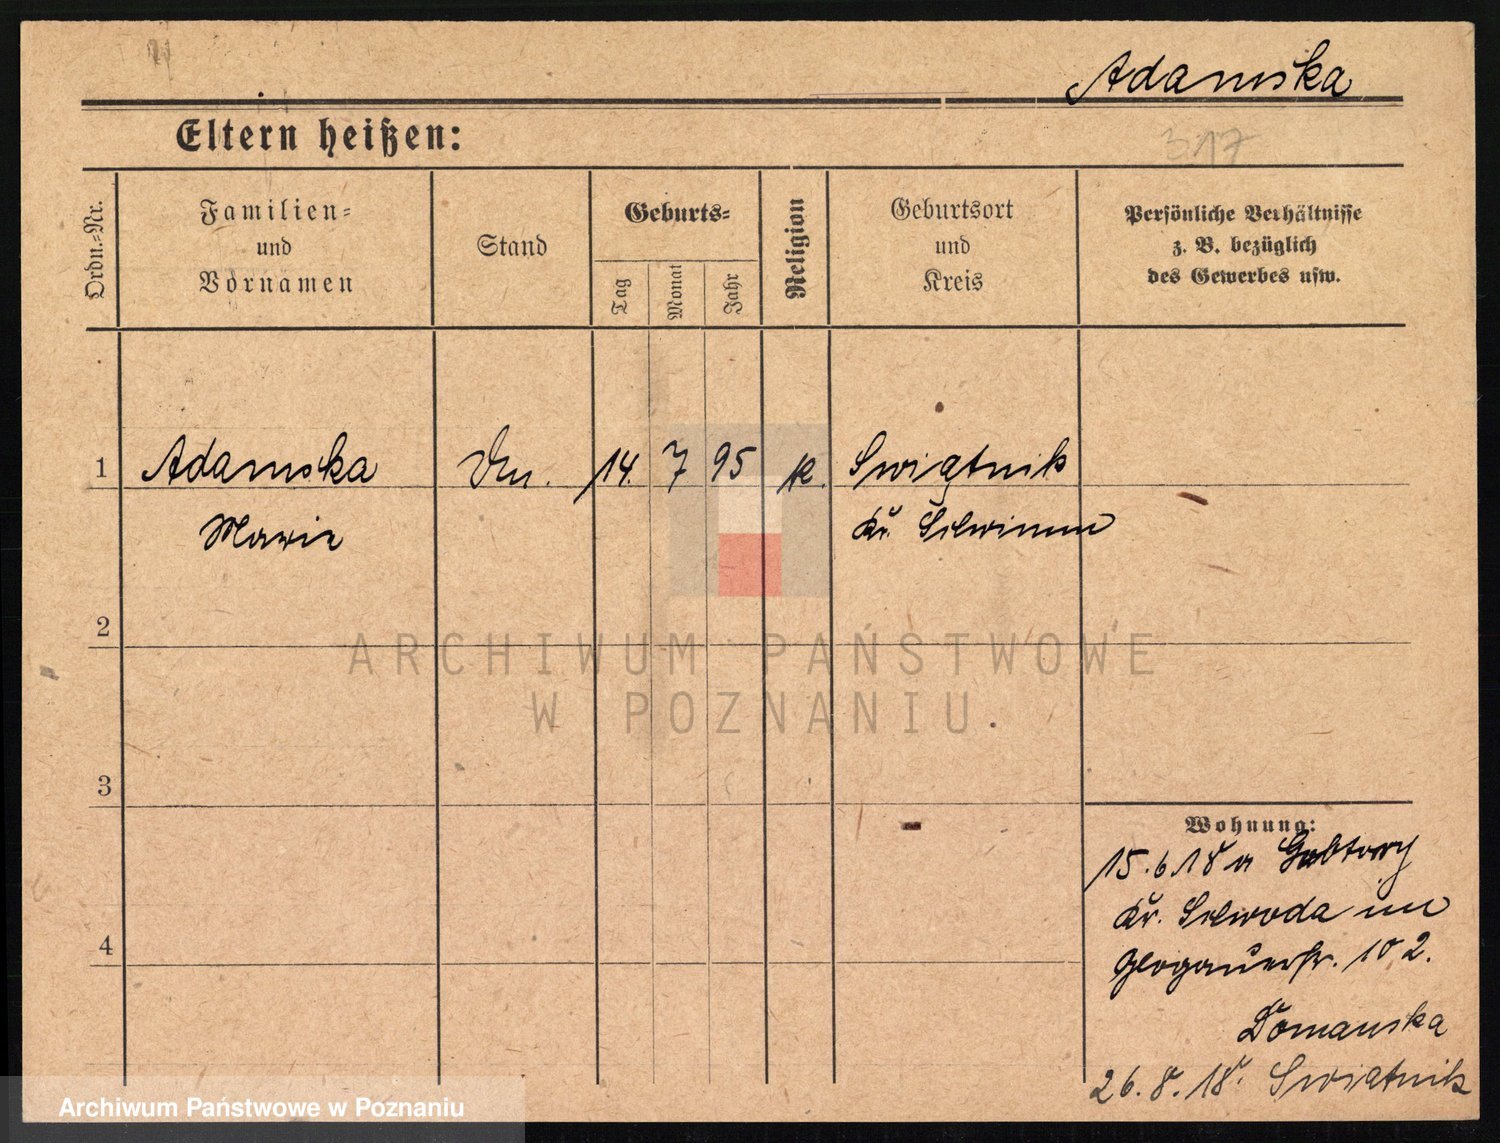 Adamska
Eltern heißen:
317
Ordn.-Nr.
Familien-
und
Vornamen
Stand
Geburts-
Tag
Monat
Jahr
Religion
Geburtsort
und
Kreis
Persönliche Verhältnisse
z. B. bezüglich
des Gewerbes usw.
1 Adamska 14. 7 95 k. Swiątnik
Marie Kr.
2
ARCHIWUM PAŃSTWOWE
W POZNANIU
3
Wohnung:
15.6.18 a
Kr. Schroda in
4
Glogauerstr. 102.
Domanska
26.8.18. Swiatnik
Archiwum Państwowe w Poznaniu